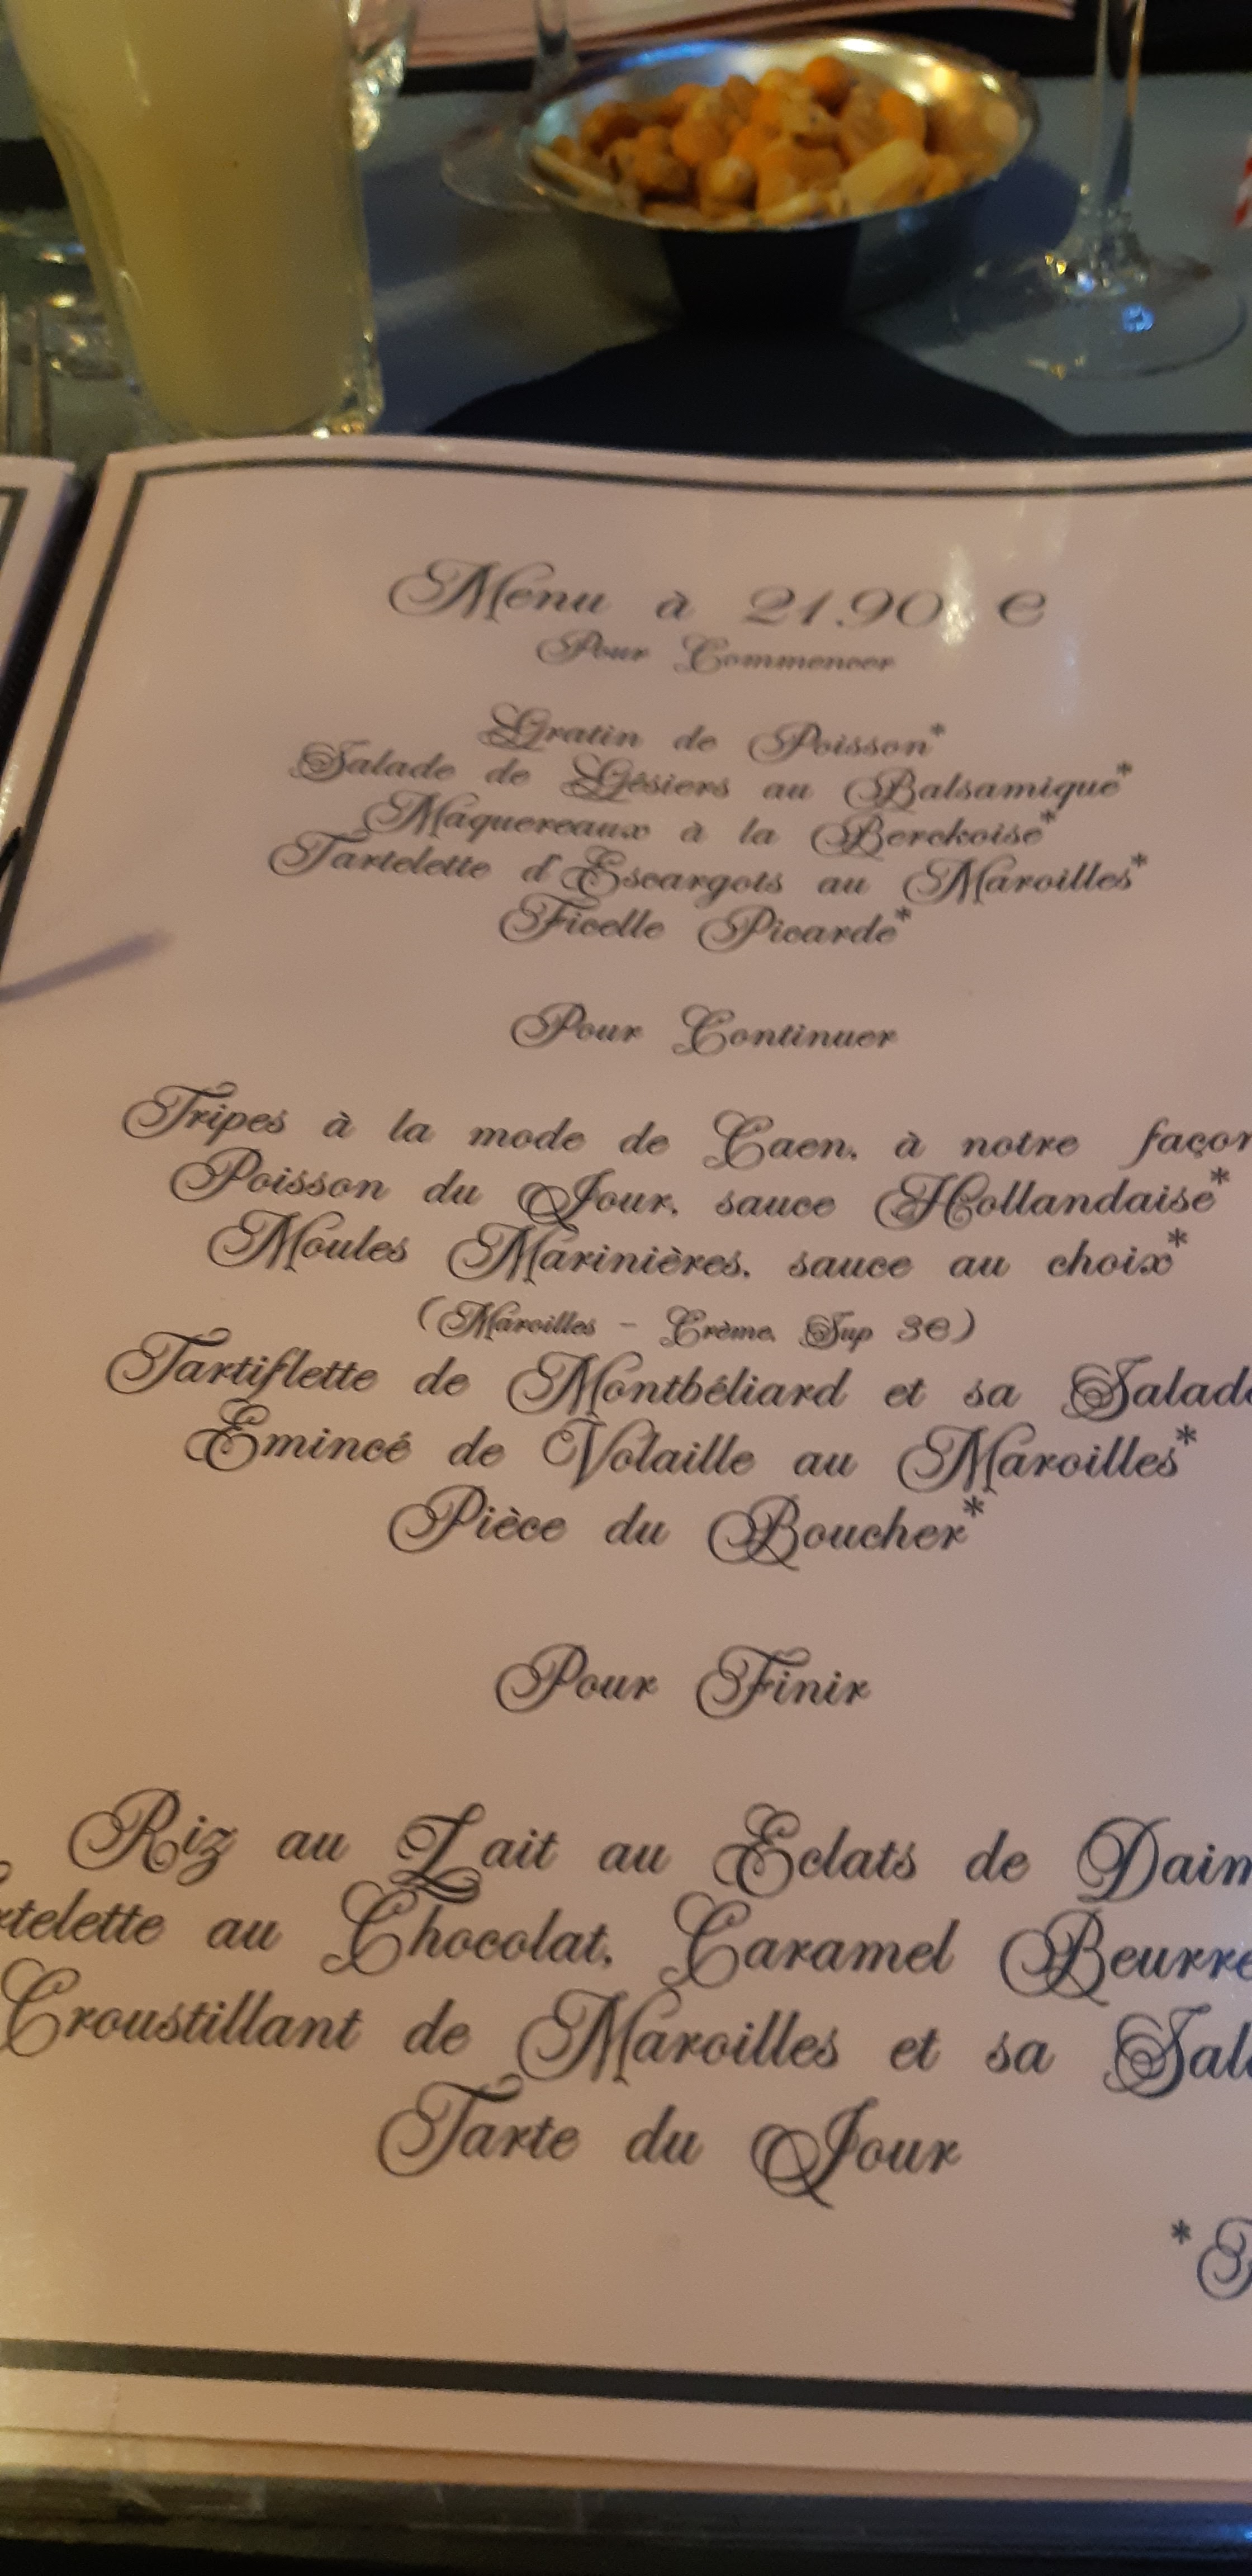 Menu à 21.90 €
Pour Commencer
Gratin de Poisson*
Salade de Gésiers au Balsamique*
Maquereaux à la Berckoise*
Tartelette d'Escargots au Maroilles*
Ficelle Picarde*
Pour Continuer
Tripes à la mode de Caen, à notre façon
Poisson du Jour, sauce Hollandaise*
Moules Marinières, sauce au choix*
(Maroilles - Crème, Sup 3€)
Tartiflette de Montbéliard et sa Salade
Emincé de Volaille au Maroilles*
Pièce du Boucher*
Pour Finir
Riz au Lait au Eclats de Daim
rtelette au Chocolat, Caramel Beurre
Croustillant de Maroilles et sa Sala
Tarte du Jour
*